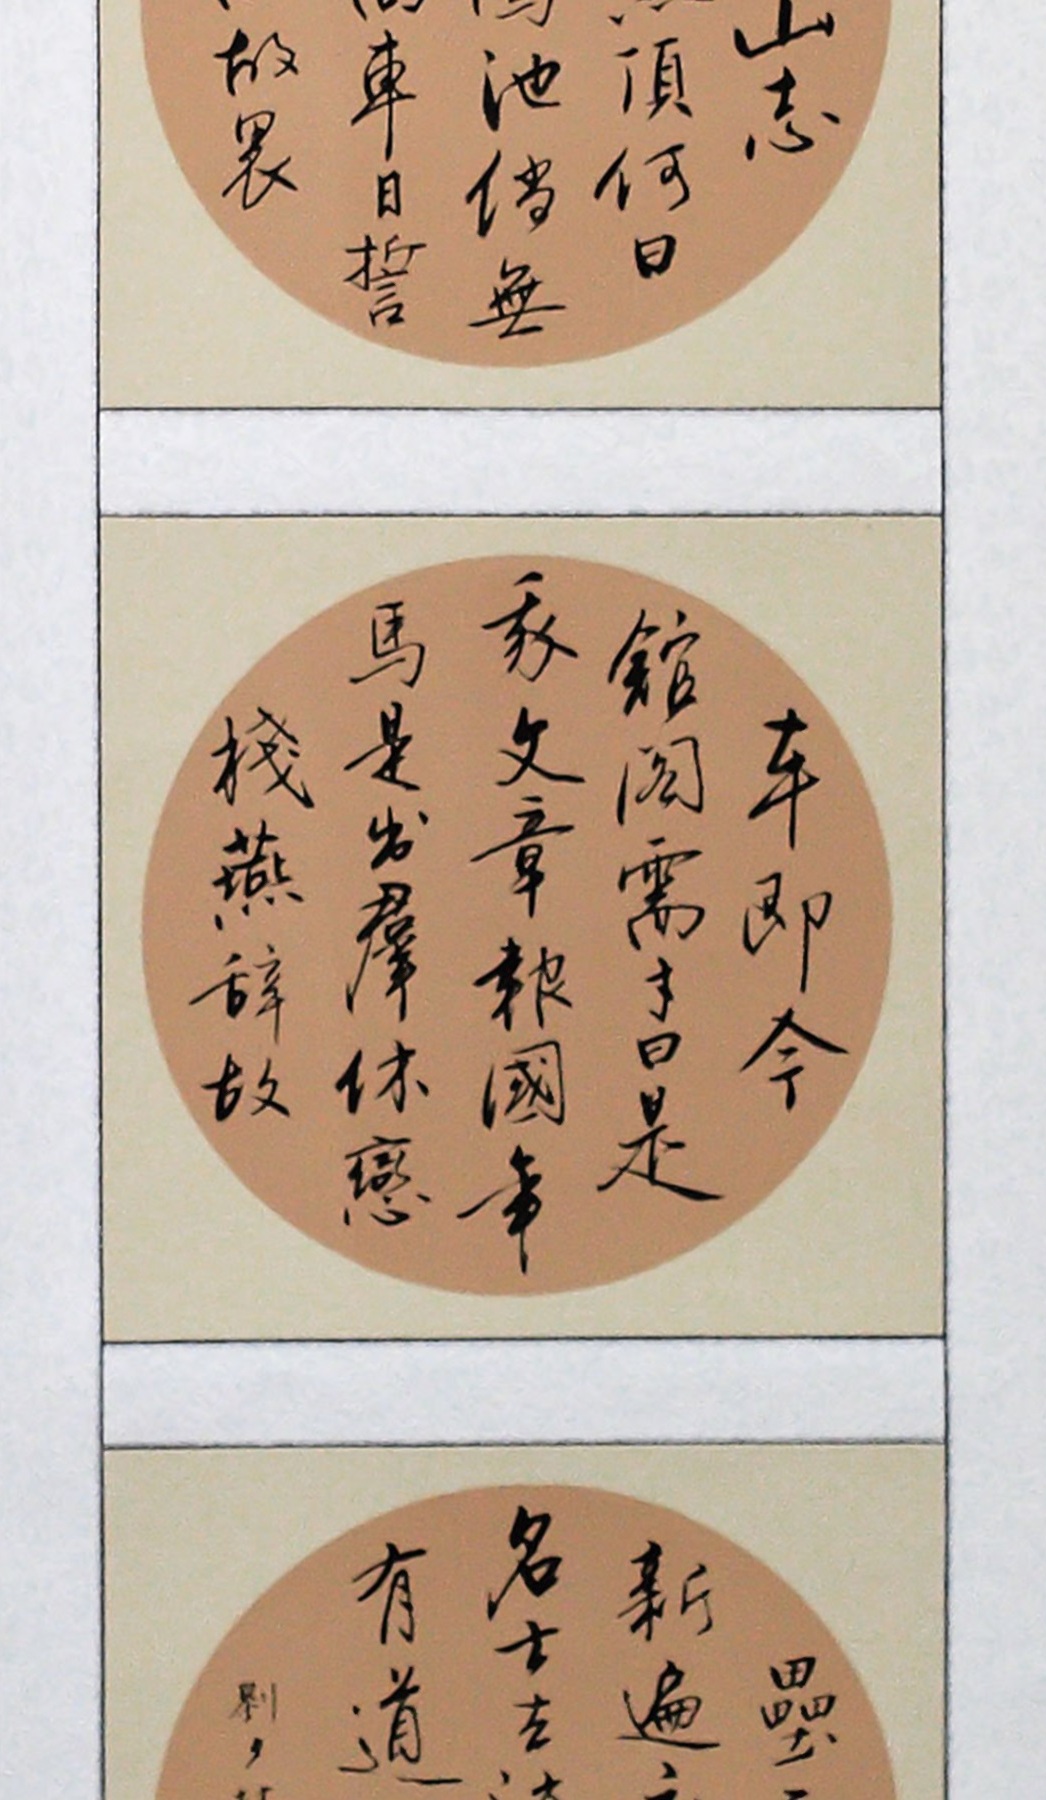 山志
頂何日
池倘無
車日誓
故裏
車即今
館阁需才日是
我文章報國年
馬是出群休戀
棧燕辞故
壘
新遍
名士
有道